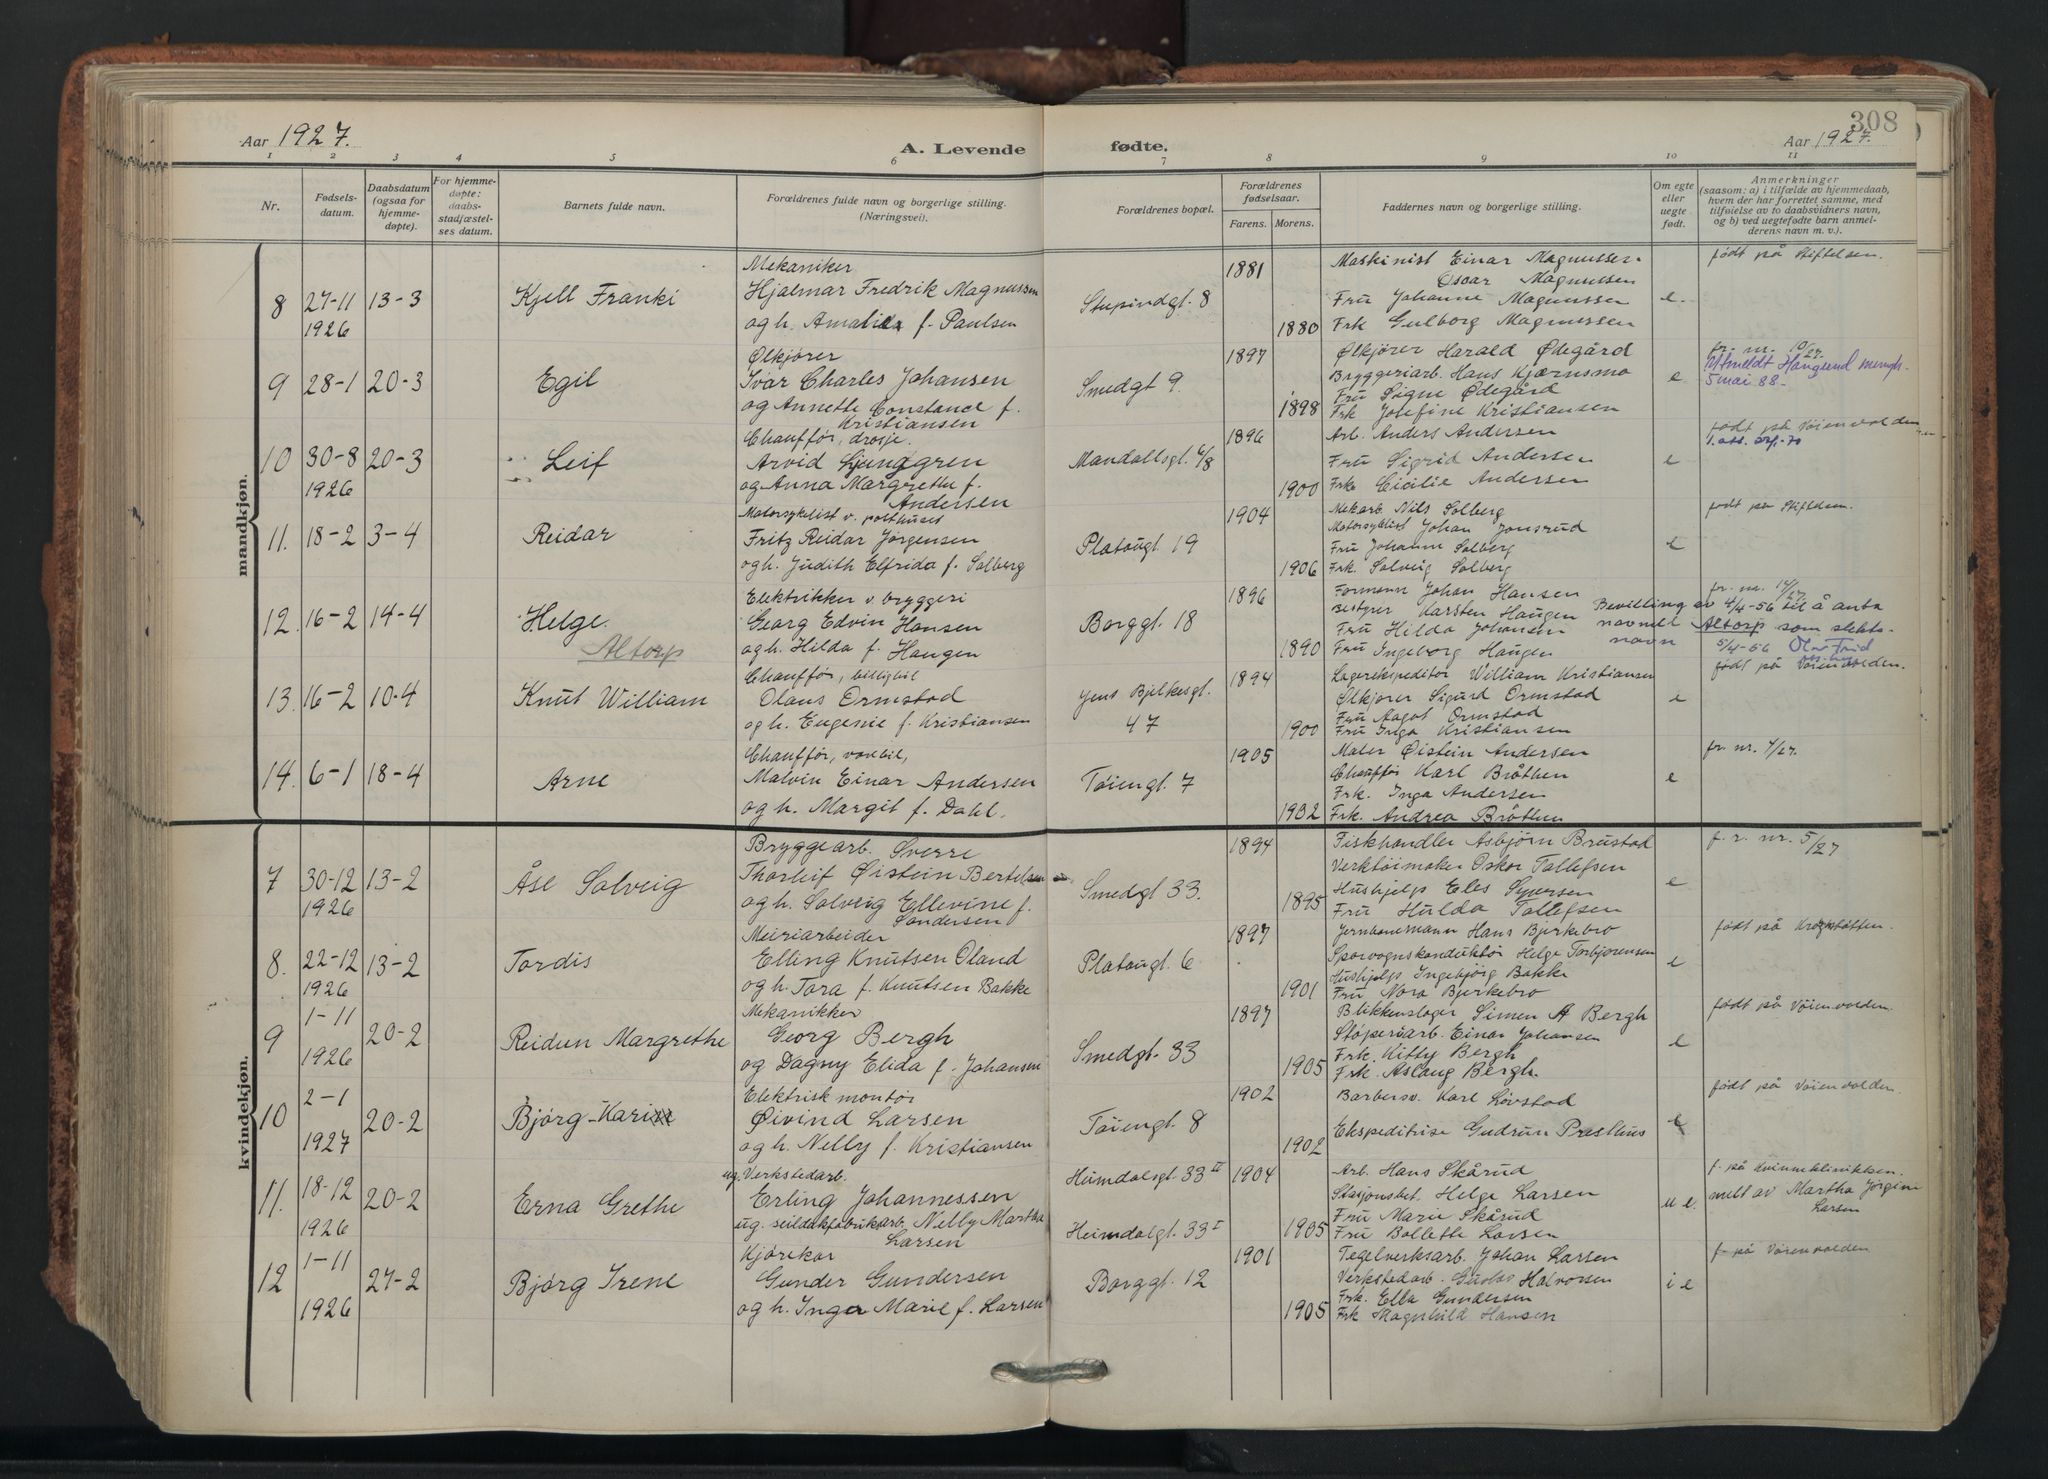 308
Aar 1927.
A. Levende fødte.
Aar 1927.
1 2 3 4 5 6 7 8 9 10 11
Nr.
Fødsels-
datum.
Daabsdatum
(ogsaa for
hjemme-
døpte).
For hjemme-
døpte:
daabs-
stadfæstel-
ses datum.
Barnets fulde navn.
Forældrenes fulde navn og borgerlige stilling.
(Næringsvei).
Forældrenes bopæl.
Forældrenes
fødselsaar.
Farens. Morens.
Faddernes navn og borgerlige stilling.
Om egte
eller
uegte
født.
Anmerkninger
(saasom: a) i tilfælde av hjemmedaab,
hvem der har forrettet samme, med
tilføielse av to daabsvidners navn,
og b) ved uegtefødte barn anmel-
derens navn m. v.).
mandkjøn.
8
27-11
1926
13-3
Kjell Franki
Mekaniker
Hjalmar Fredrik Magnussen
og h. Amalie f. Paulsen
Stupindgt. 8
1881
1880
Maskinist Einar Magnussen
Oscar Magnussen
Fru Johanne Magnussen
Frk Gulborg Magnussen
e.
født på Stiftelsen.
9
28-1
20-3
Egil
Ølkjører
Ivar Charles Johansen
og Annette Constance f.
Kristiansen
Smedgt 9.
1897
1898
Ølkjører Harald Ødegård
Bryggeriarb. Hans Kjærnsmo
Fru Signe Ødegård
Frk Josefine Kristiansen
e
fr. nr. 10/27.
Utmeldt Haugerud menigh.
5 mai 88.
10
30-8
1926
20-3
Leif
Chauffør, drosje.
Arvid Ljunggren
og Anna Margrethe f.
Andersen
Mandallsgt. 6/8
1896
1900
Arb. Anders Andersen
Fru Sigrid Andersen
Frk Cicilie Andersen
e
født på Vöienvolden
11.
18-2
3-4
Reidar
Motorsyklist v. posthuset
Fritz Reidar Jørgensen
og h. Judith Elfrida f. Solberg
Platougt. 19
1904
1906
Mekarb. Nils Solberg
Motorsyklist Johan Jonsrud
Fru Johanne Solberg
Frk. Solveig Solberg
e
født på Stiftelsen.
12.
16-2
14-4
Helge.
Altorp
Elektrikker v. bryggeri
Georg Edvin Hansen
og h. Hilda f. Haugen
Borggt. 18
1896
1890
Formann Johan Hansen
Bestyrer Karsten Haugen
Fru Hilda Johansen
Fru Ingeborg Haugen
fr. nr. 14/27.
Bevilling av 4/4-56 til å anta
navnet Altorp som slekts-
navn 5/4-56
13.
16-2
10-4
Knut William
Chauffør, billigbil
Olaus Ormstad
og h. Eugenie f. Kristiansen
Jens Bjelkesgt.
47
1894
1900
Lagerekspeditør William Kristiansen
Ølkjører Sigurd Ormstad
Fru Aagot Ormstad
Fru Inga Kristiansen
e
født på Vöienvolden.
14.
6-1
18-4
Arne
Chauffør, varebil,
Malvin Einar Andersen
og h. Margit f. Dahl.
Töiengt. 7
1905
1902
Maler Øistein Andersen
Chauffør Karl Bråthen
Frk. Inga Andersen
Frk. Andrea Bråthen
e
fr. nr. 7/27.
kvindekjøn.
7
30-12
1926
13-2
Åse Solveig
Bryggearb. Sverre
Thorleif Øistein Bertelsen
og h. Solveig Ellevine f.
Sandersen
Smedgt 33.
1894
1895
Fiskhandler Asbjørn Brustad
Verktøimaker Oskar Tollefsen
Hushjelp Els Syversen
Fru Hulda Tollefsen
e
f. r. nr. 5/27
8.
22-12
1926
13-2
Tordis
Meieriarbeider
Elling Knutsen Oland
og h. Tora f. Knutsen Bakke
Platougt. 6
1897
1901
Jernbanemann Hans Bjerkebro
Sporvognskonduktør Helge Torbjørensen
Hushjelp Ingebjørg Bakke
Fru Nora Bjerkebro
e
født på Krogstøtten.
9
1-11
1926
20-2
Reidun Margrethe
Mekanikker
Georg Bergh
og Dagny Elida f. Johansen
Smedgt. 33
1897
1905
Blikkenslager Simen A Bergh
Støperiarb. Einar Johansen
Frk. Kitty Bergh
Frk. Aslaug Bergh.
e
født på Vöienvolden.
10
2-1
1927
20-2
Bjørg-Kari
Elektrisk montør
Øivind Larsen
og h. Nelly f. Kristiansen
Töiengt. 8
1902
1902
Barbersv. Karl Løvstad
Ekspeditrise Gudrun Presthus
e
født på Vöienvolden.
11.
18-12
1926
20-2
Erna Grethe
ug. Verkstedarb.
Erling Johannessen
ug. seildukfabrikarb. Nelly Martha
Larsen
Heimdalsgt. 33 II
Heimdalgt. 33 I
1904
1905
Arb. Hans Skårud
Stasjonsbet. Helge Larsen
Fru Marie Skårud
Fru Bolleth Larsen
u e.
f. på Kvinneklinikken.
melt av Martha Jörgine
Larsen
12
1-11
1926
27-2
Bjørg Irene
Kjørekar
Gunder Gundersen
og h. Inga Marie f. Larsen
Borggt. 12
1901
1905
Teglverksarb. Johan Larsen
Verkstedarb. Gustav Halvorsen
Frk. Ella Gundersen
Frk Magnhild Hansen
i e
f. på Vöienvolden